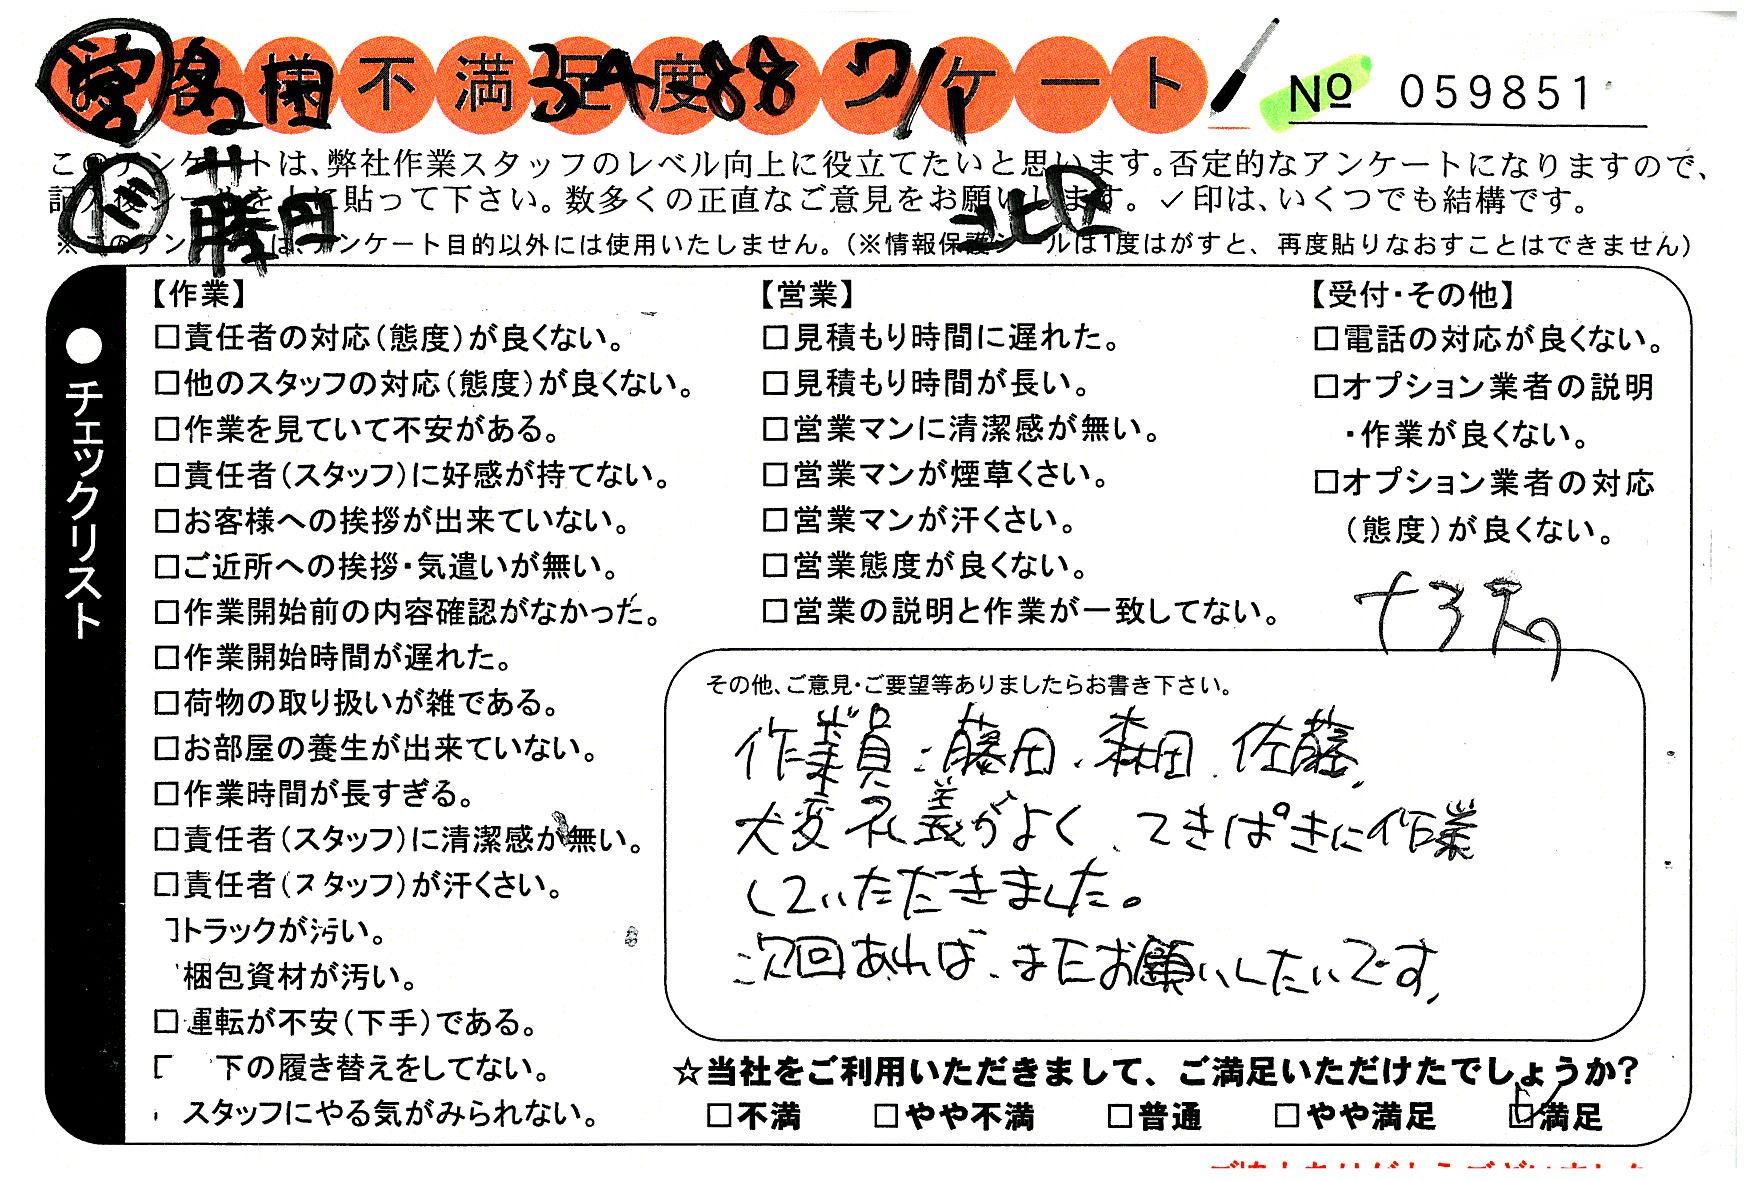 お客様不満足度アンケート
№ 059851
このアンケートは、弊社作業スタッフのレベル向上に役立てたいと思います。否定的なアンケートになりますので、
記入後シールを上に貼って下さい。数多くの正直なご意見をお願いします。✓印は、いくつでも結構です。
※このアンケートは、アンケート目的以外には使用いたしません。（※情報保護シールは1度はがすと、再度貼りなおすことはできません）
営
34-88
7/1
藤田
北区
●チェックリスト
【作業】
□責任者の対応（態度）が良くない。
□他のスタッフの対応（態度）が良くない。
□作業を見ていて不安がある。
□責任者（スタッフ）に好感が持てない。
□お客様への挨拶が出来ていない。
□ご近所への挨拶・気遣いが無い。
□作業開始前の内容確認がなかった。
□作業開始時間が遅れた。
□荷物の取り扱いが雑である。
□お部屋の養生が出来ていない。
□作業時間が長すぎる。
□責任者（スタッフ）に清潔感が無い。
□責任者（スタッフ）が汗くさい。
トラックが汚い。
梱包資材が汚い。
□運転が不安（下手）である。
下の履き替えをしてない。
スタッフにやる気がみられない。
【営業】
□見積もり時間に遅れた。
□見積もり時間が長い。
□営業マンに清潔感が無い。
□営業マンが煙草くさい。
□営業マンが汗くさい。
□営業態度が良くない。
□営業の説明と作業が一致してない。
【受付・その他】
□電話の対応が良くない。
□オプション業者の説明
・作業が良くない。
□オプション業者の対応
（態度）が良くない。
その他、ご意見・ご要望等ありましたらお書き下さい。
作業員：藤田、森田、佐藤、
大変礼義がよく、てきぱきに作業
していただきました。
次回あれば、またお願いしたいです。
☆当社をご利用いただきまして、ご満足いただけたでしょうか？
□不満 □やや不満 □普通 □やや満足 ☑満足